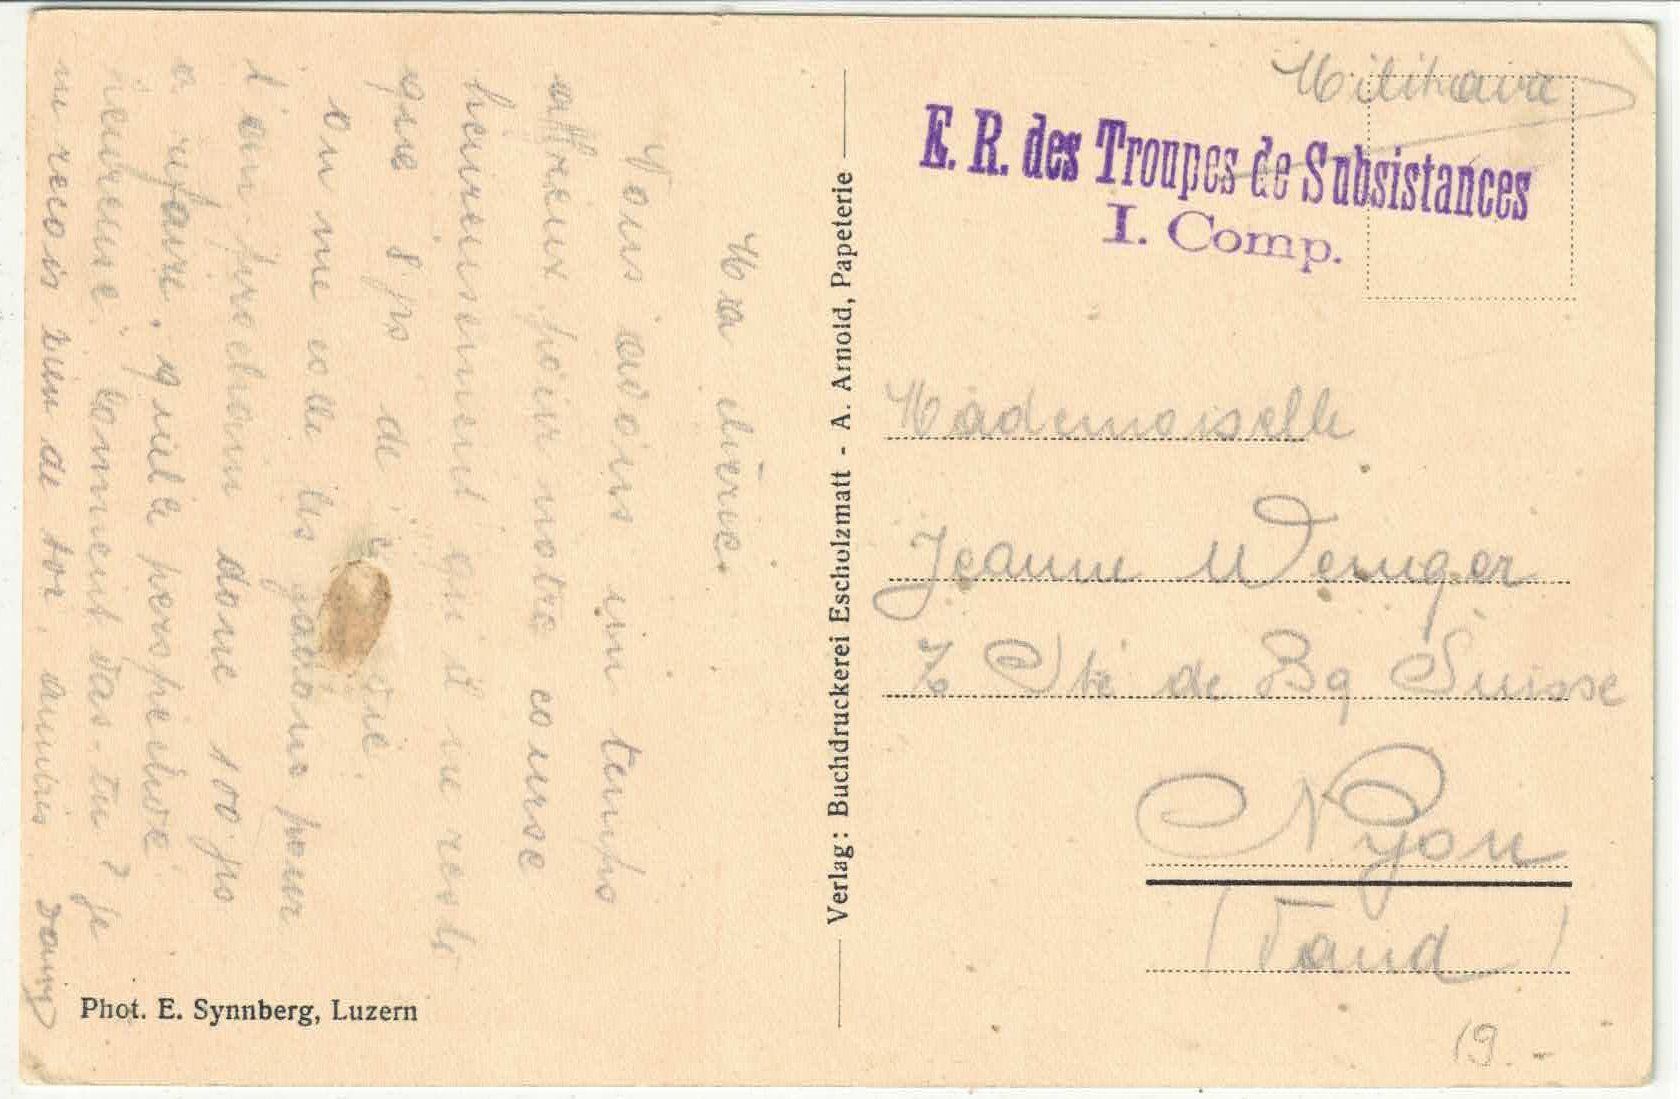 Militaire
E. R. des Troupes de Subsistances
I. Comp.
Mademoiselle
Jeanne Wenger
Sté de Bq Suisse
Nyon
(Vaud)
19.-
Verlag: Buchdruckerei Escholzmatt - A. Arnold, Papeterie
Ma chérie.
Nous avons un temps
affreux pour notre course
heureusement qu'il ne reste
que 8 jrs de
on me colle les galons pour
l'an prochain donc 100 jrs
à refaire. quelle perspective
heureuse. Comment vas-tu? je
ne reçois rien de toi. amitiés. Dany
Phot. E. Synnberg, Luzern